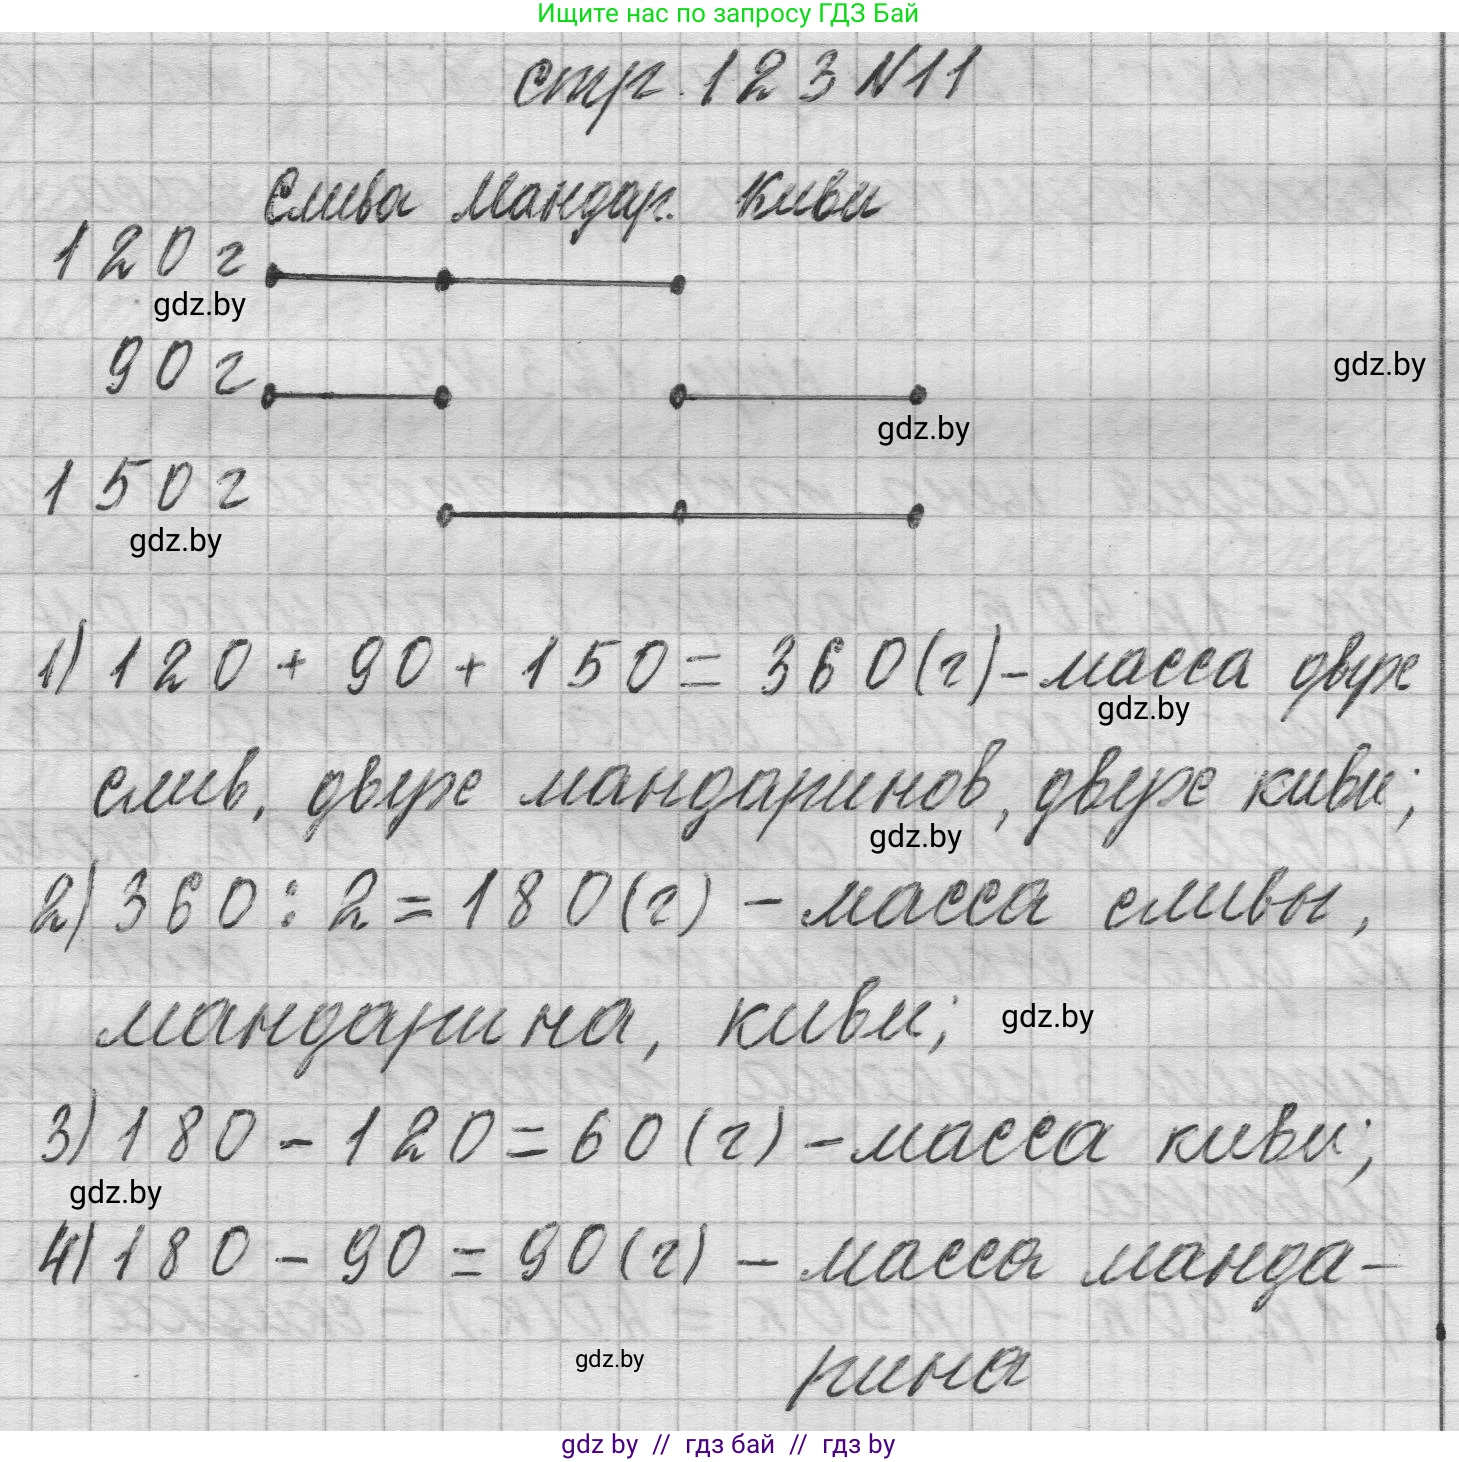 Ищите нас по запросу ГДЗ Бай
стр. 123 №11
Слива Мандар. Киви
120 г
gdz.by
90 г
gdz.by
gdz.by
150 г
gdz.by
1) 120 + 90 + 150 = 360 (г) - масса двух
gdz.by
слив, двух мандаринов, двух киви;
gdz.by
2) 360 : 2 = 180 (г) - масса сливы,
мандарина, киви;
gdz.by
3) 180 - 120 = 60 (г) - масса киви;
gdz.by
4) 180 - 90 = 90 (г) - масса манда-
gdz.by
рина
gdz by // гдз бай // гдз by